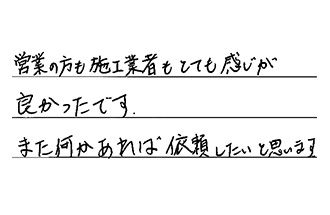 営業の方も施工業者もとても感じが
良かったです.
また何かあれば依頼したいと思います